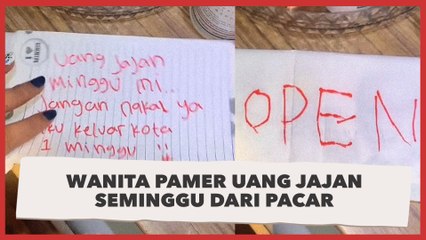 uang jajan
minggu ini..
Jangan nakal ya
aku keluar kota
1 minggu !!
OPEN
WANITA PAMER UANG JAJAN
SEMINGGU DARI PACAR